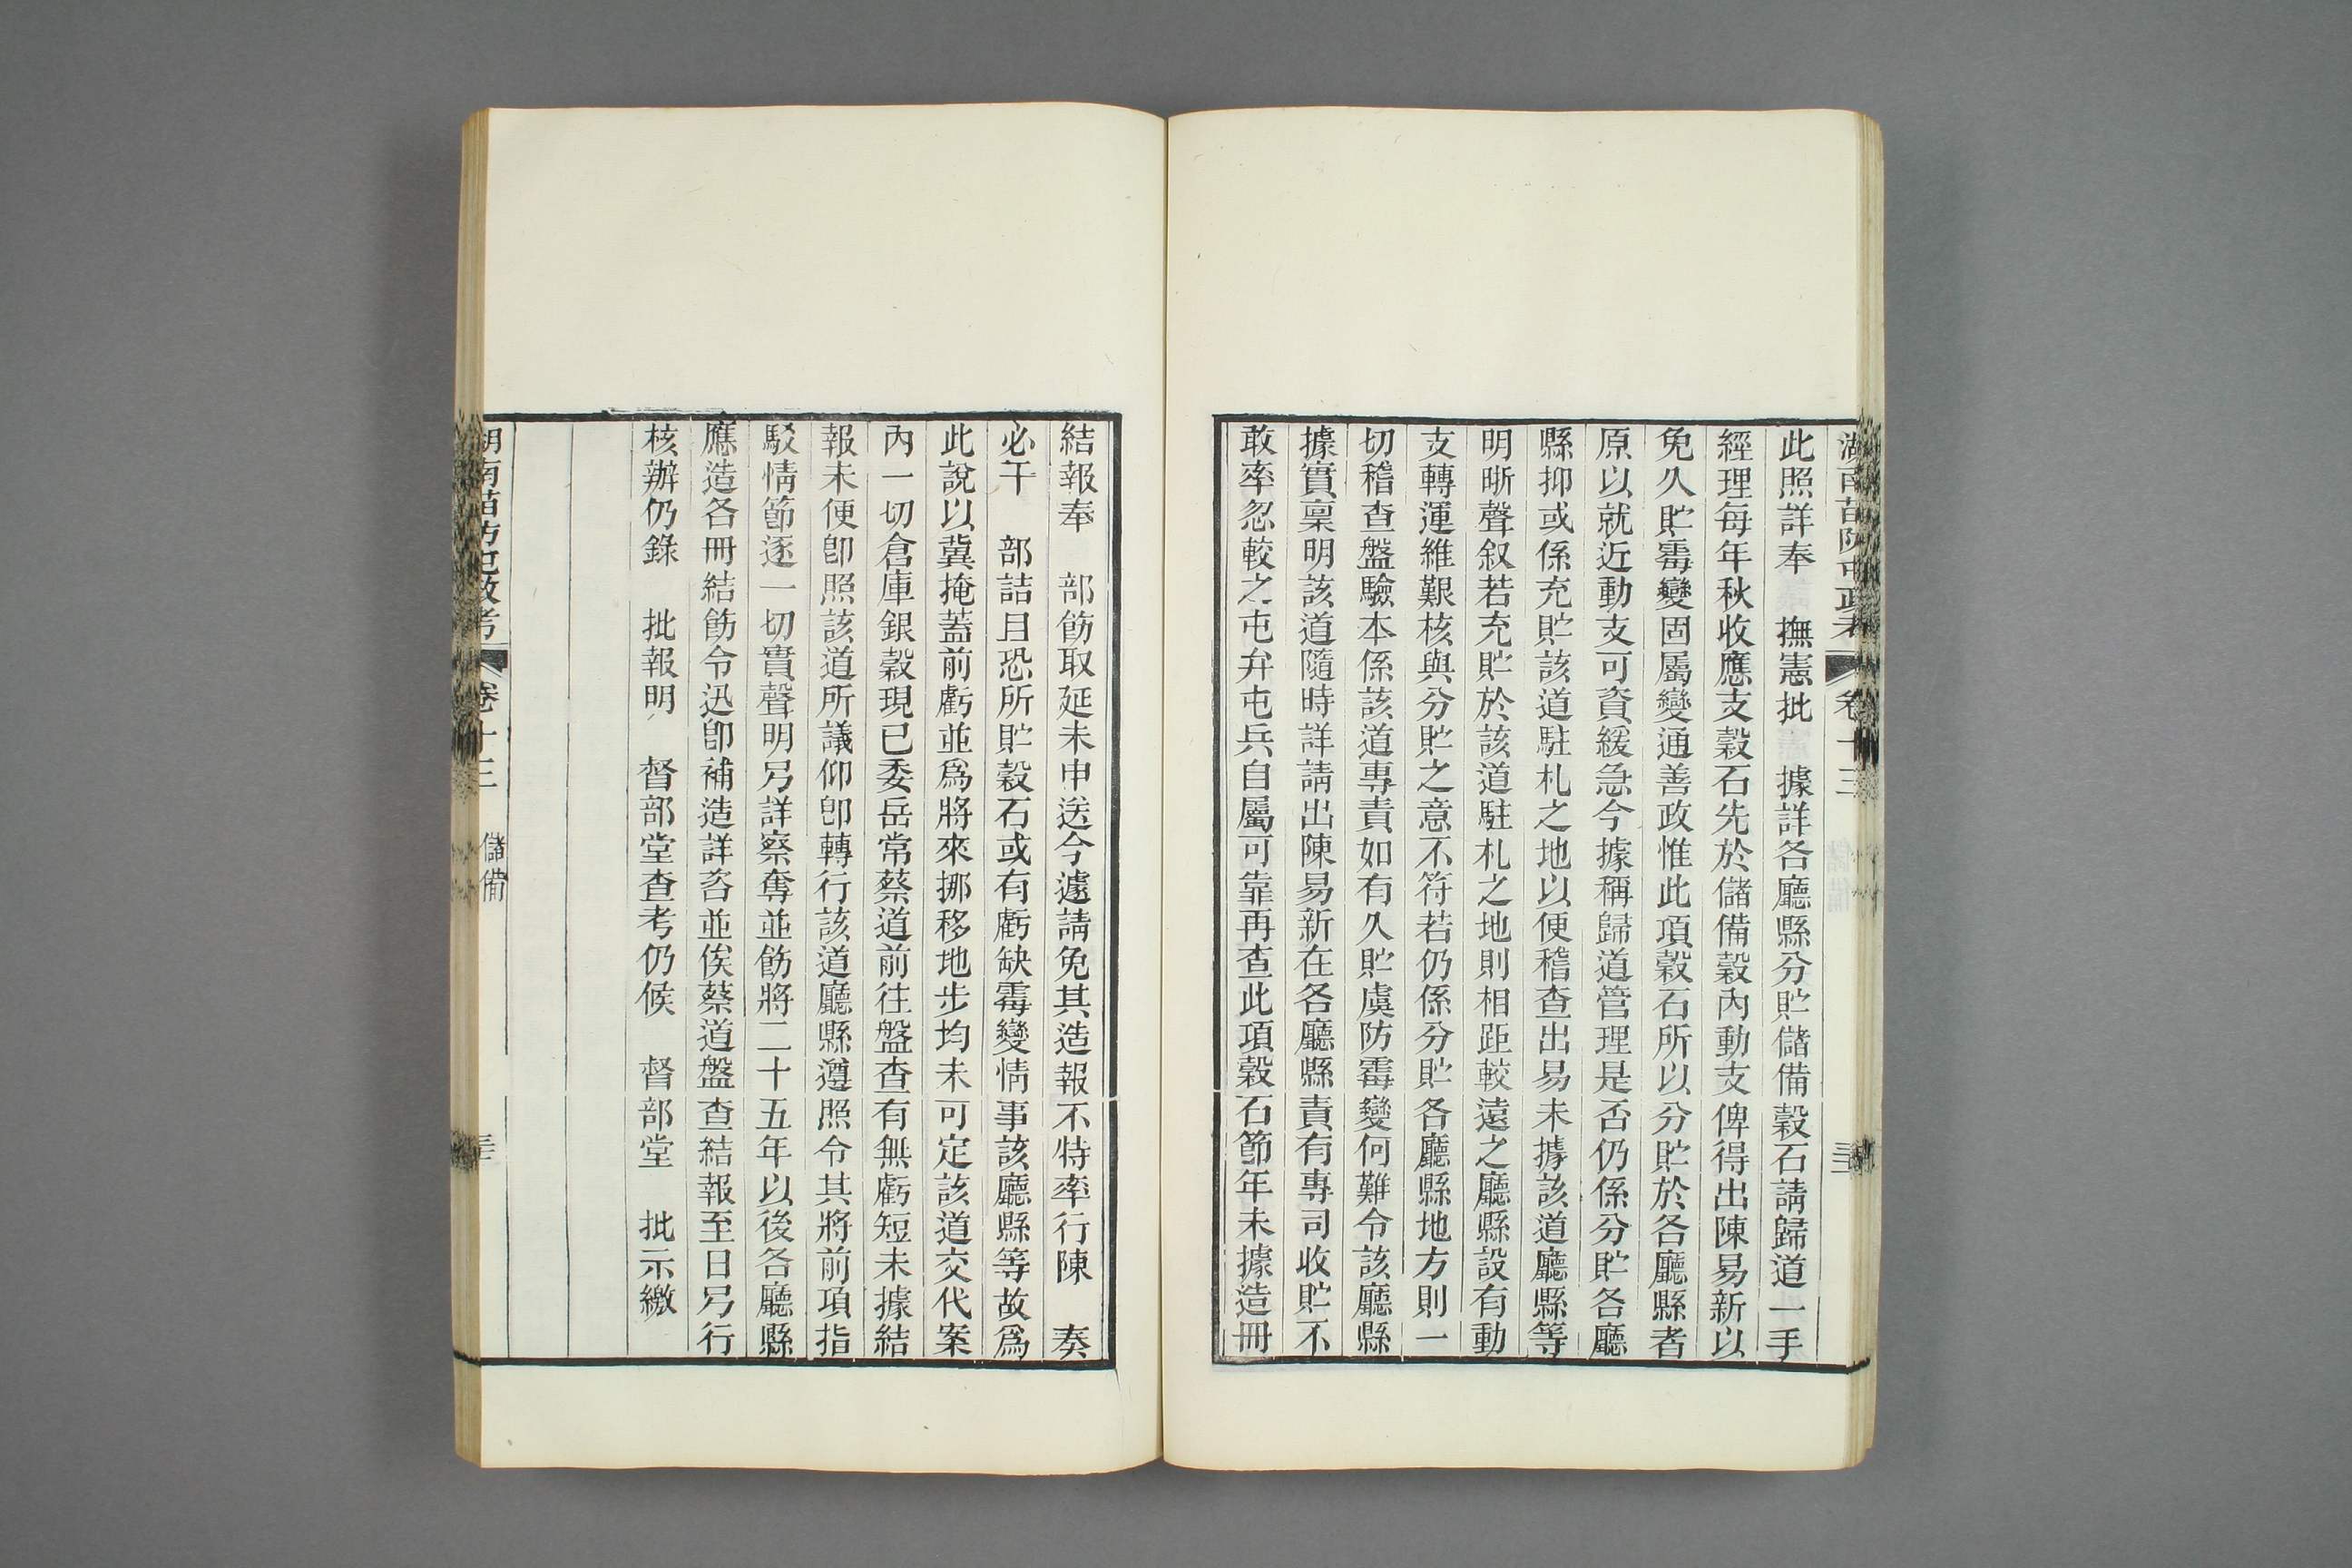 湖南苗防屯政考 卷十三
此照詳奉 撫憲批 據詳各廳縣分貯儲備穀石請歸道一手
經理每年秋收應支穀石先於儲備穀內動支俾得出陳易新以
免久貯霉變固屬變通善政惟此項穀石所以分貯於各廳縣者
原以就近動支可資緩急今據稱歸道管理是否仍係分貯各廳
縣抑或係充貯該道駐札之地以便稽查出易未據該道廳縣等
明晰聲叙若充貯於該道駐札之地則相距較遠之廳縣設有動
支轉運維艱核與分貯之意不符若仍係分貯各廳縣地方則一
切稽查盤驗本係該道專責如有久貯虞防霉變何難令該廳縣
據實稟明該道隨時詳請出陳易新在各廳縣責有專司收貯不
敢率忽較之屯弁屯兵自屬可靠再查此項穀石節年未據造冊
結報奉 部飭取延未申送今遽請免其造報不特率行陳 奏
必干 部詰且恐所貯穀石或有虧缺霉變情事該廳縣等故爲
此說以冀掩蓋前虧並爲將來挪移地步均未可定該道交代案
內一切倉庫銀穀現已委岳常蔡道前往盤查有無虧短未據結
報未便卽照該道所議仰卽轉行該道廳縣遵照令其將前項指
駁情節逐一切實聲明另詳察奪並飭將二十五年以後各廳縣
應造各冊結飭令迅卽補造詳咨並俟蔡道盤查結報至日另行
核辦仍錄 批報明 督部堂查考仍候 督部堂 批示繳
湖南苗防屯政考 卷十三 儲備